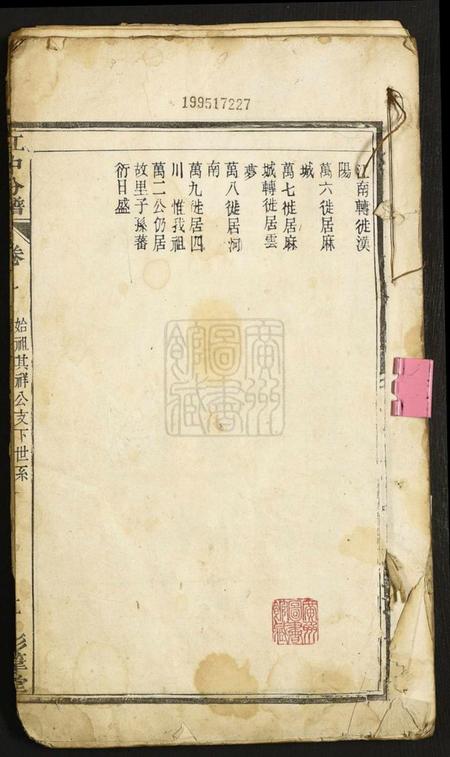 199517227
江南轉徙漢
陽
萬六徙居麻
城
萬七徙居麻
城轉徙居雲
夢
萬八徙居河
南
萬九徙居四
川惟我祖
萬二公仍居
故里子孫蕃
衍日盛
江中分譜
卷一
始祖其祥公支下世系
彩筆堂
廣州
圖書
館藏
廣州
圖書
館藏